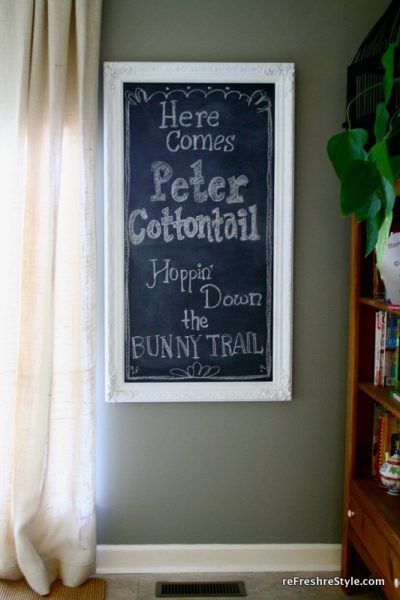 Here
Comes
Peter
Cottontail
Hoppin'
Down
the
BUNNY TRAIL
reFreshreStyle.com